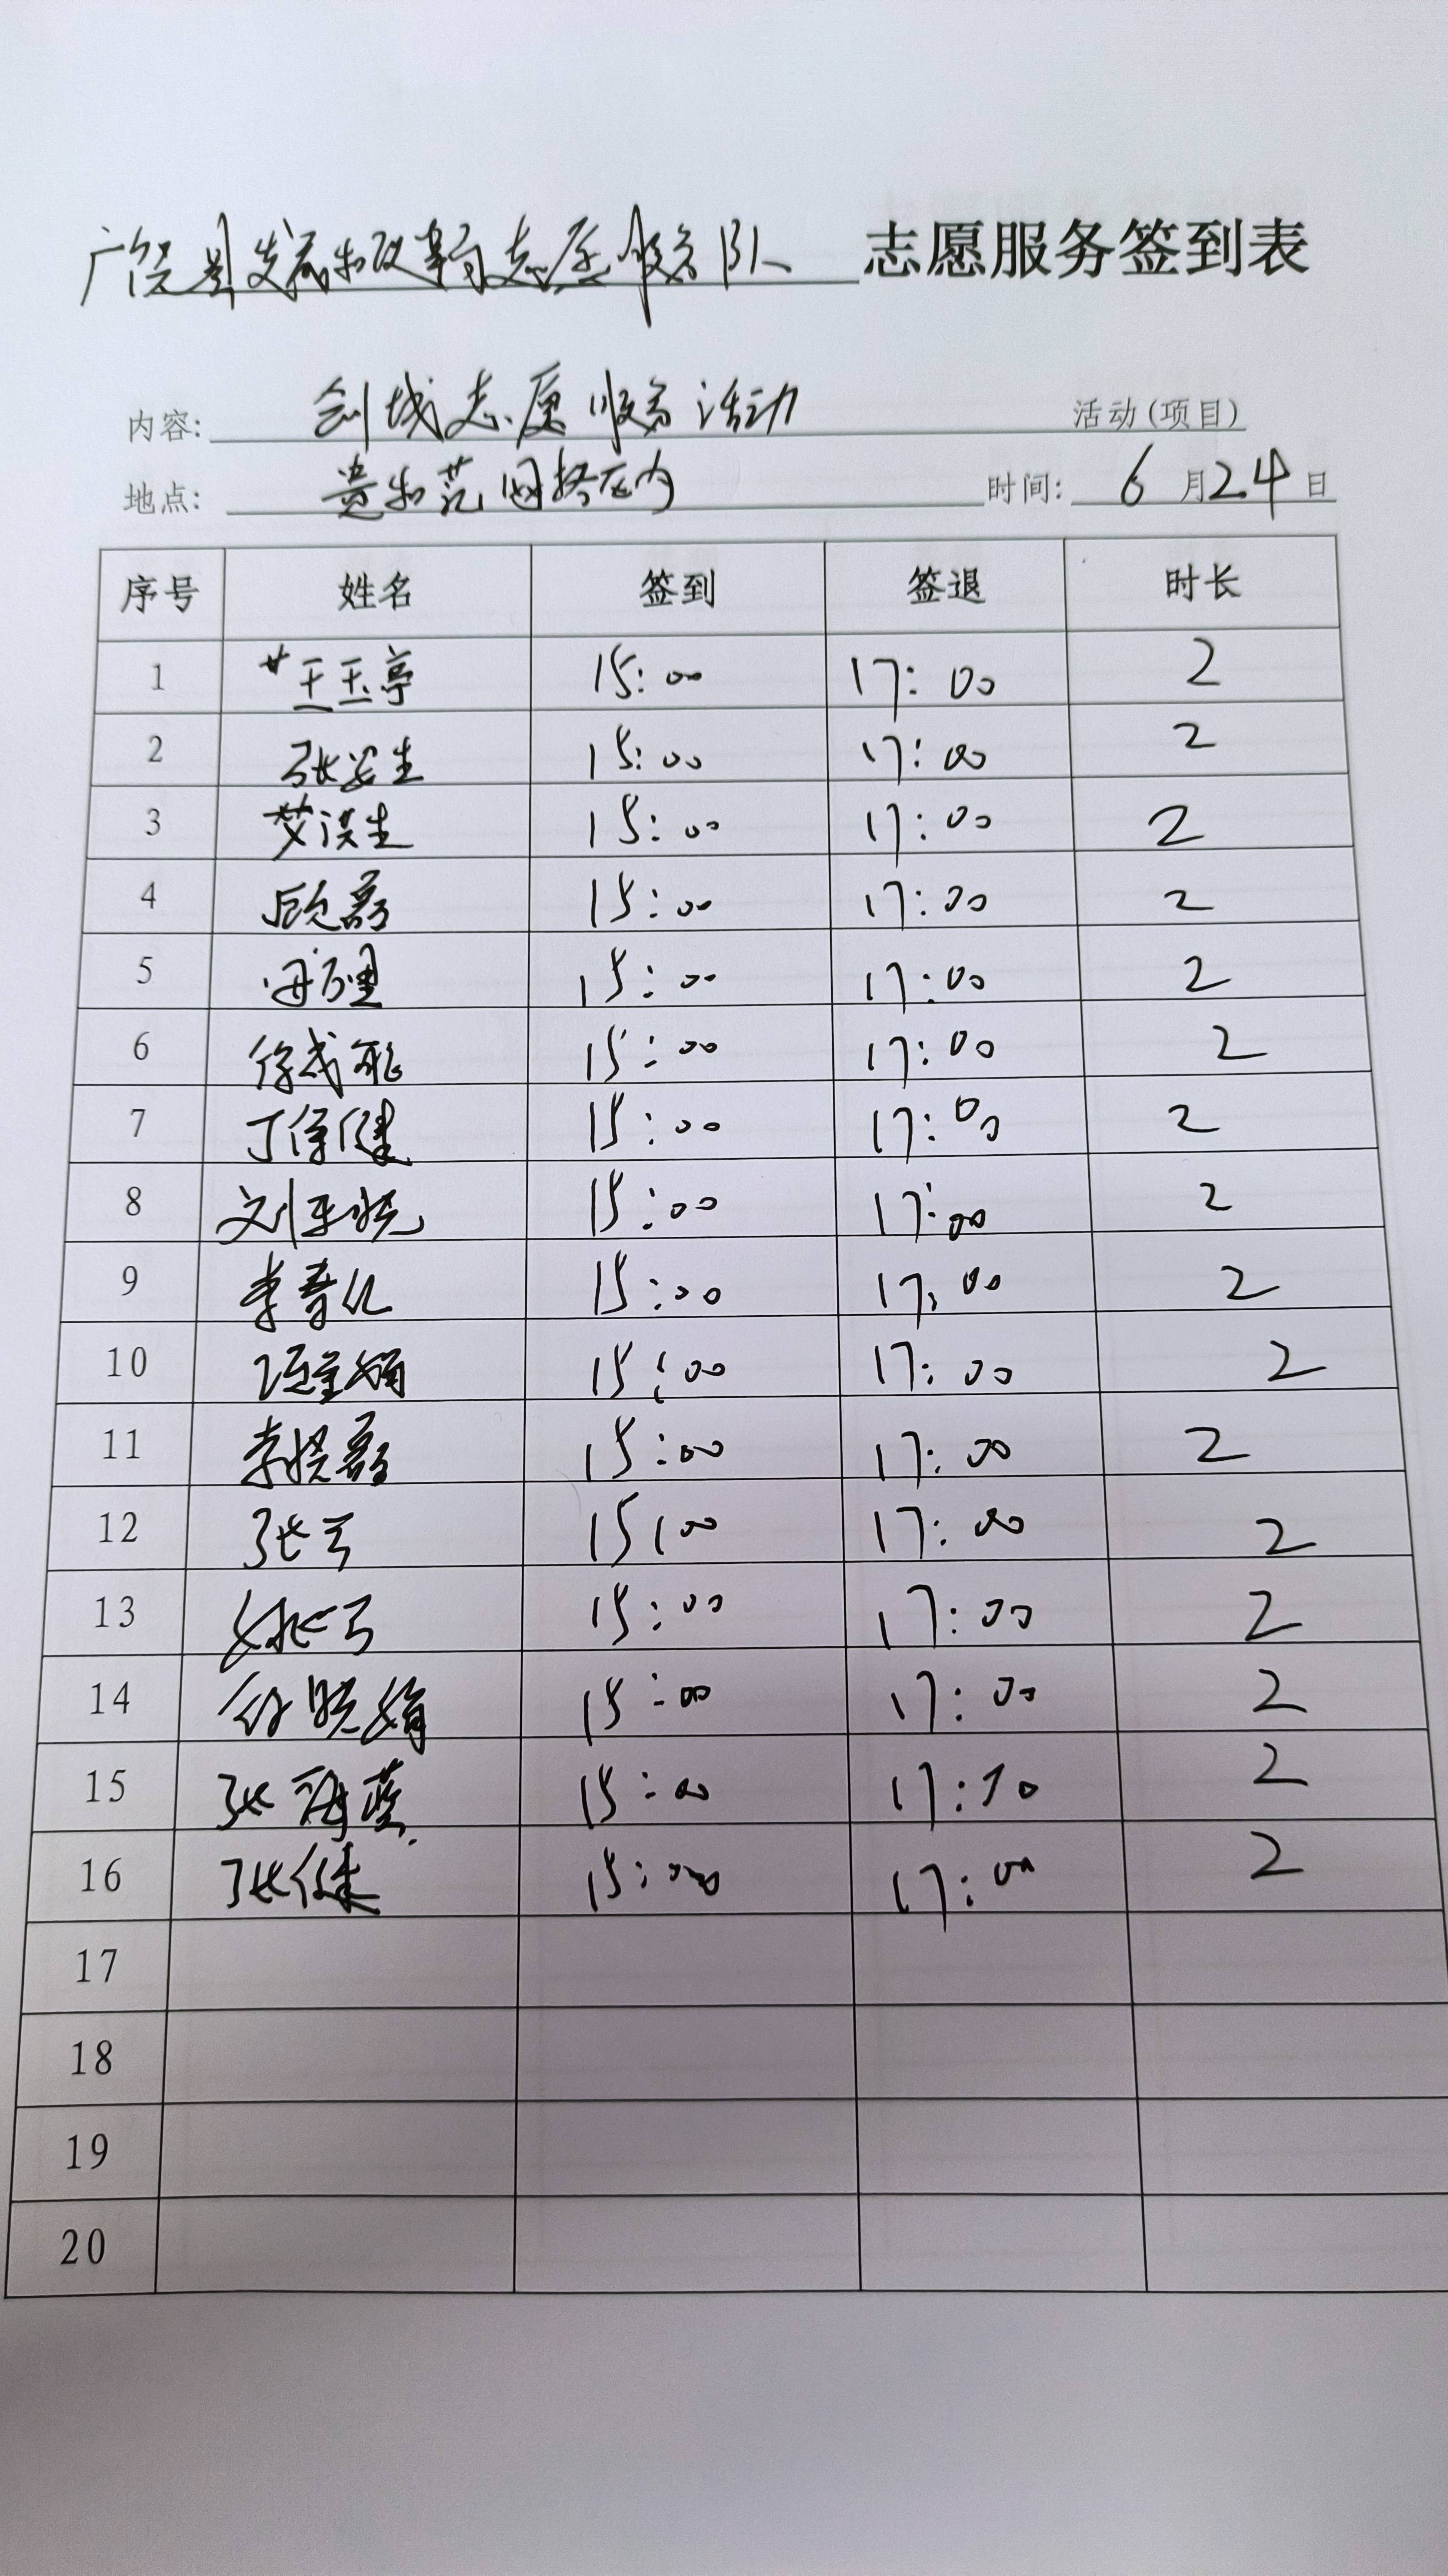 广饶县发展和改革局志愿服务队 志愿服务签到表
内容: 创城志愿服务活动 活动(项目)
地点: 贵和苑网格区内 时间: 6月24日
序号 姓名 签到 签退 时长
1 王玉亭 15:00 17:00 2
2 张 生 15:00 17:00 2
3 生 15:00 17:00 2
4 磊 15:00 17:00 2
5 15:00 17:00 2
6 徐成 15:00 17:00 2
7 丁 健 15:00 17:00 2
8 刘 15:00 17:00 2
9 李 15:00 17:00 2
10 15:00 17:00 2
11 李晓磊 15:00 17:00 2
12 张 15:00 17:00 2
13 姚 15:00 17:00 2
14 晓娟 15:00 17:00 2
15 张海燕 15:00 17:10 2
16 张健 15:00 17:00 2
17
18
19
20